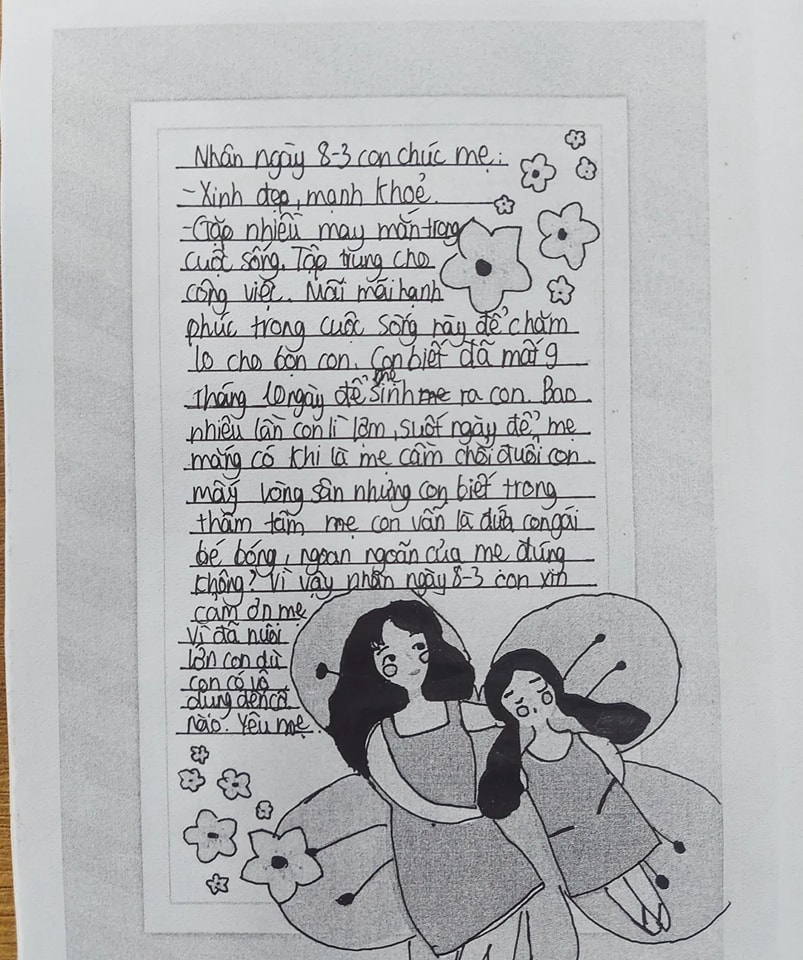 Nhân ngày 8-3 con chúc mẹ:
- Xinh đẹp, mạnh khoẻ.
- Gặp nhiều may mắn trong
cuộc sống. Tập trung cho
công việc. Mãi mãi hạnh
phúc trong cuộc sống này để chăm
lo cho bọn con. Con biết đã mất 9
tháng 10 ngày để mẹ sinh ra con. Bao
nhiêu lần con lì lợm, suốt ngày để mẹ
mắng có khi là mẹ cầm chổi đuổi con
mấy vòng sân nhưng con biết trong
thâm tâm mẹ con vẫn là đứa con gái
bé bỏng, ngoan ngoãn của mẹ đúng
không? Vì vậy nhân ngày 8-3 con xin
cảm ơn mẹ
vì đã nuôi
lớn con dù
con có vô
dụng đến cỡ
nào. Yêu mẹ.